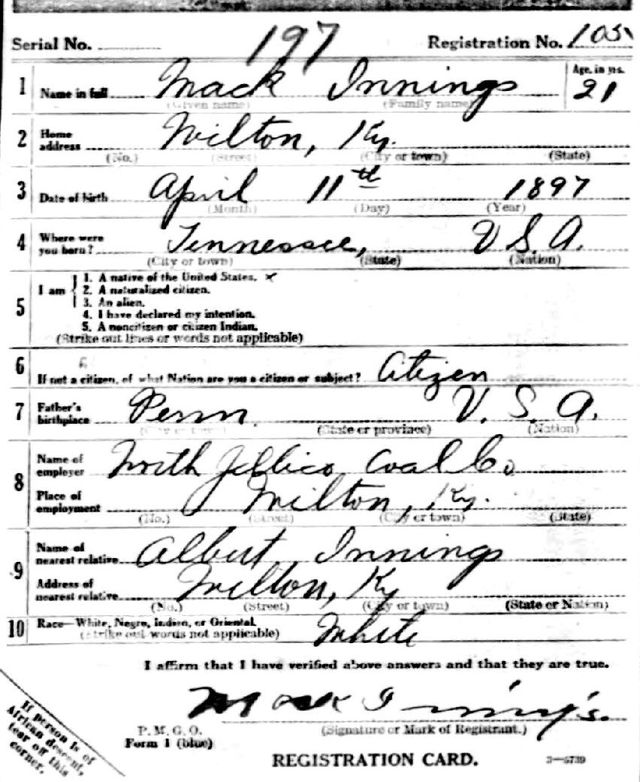 Serial No. 197 Registration No. 105
1 Name in full Mack Innings Age, in yrs. 21
(Given name) (Family name)
2 Home address Wilton, Ky.
(No.) (Street) (City or town) (State)
3 Date of birth April 11th 1897
(Month) (Day) (Year)
4 Where were you born? Tennessee, U.S.A.
(City or town) (State) (Nation)
5 I am
1. A native of the United States. x
2. A naturalized citizen.
3. An alien.
4. I have declared my intention.
5. A noncitizen or citizen Indian.
(Strike out lines or words not applicable)
6 If not a citizen, of what Nation are you a citizen or subject? Citizen
7 Father's birthplace Penn. U.S.A.
(City or town) (State or province) (Nation)
8 Name of employer North Jellico Coal Co
Place of employment Wilton, Ky.
(No.) (Street) (City or town) (State)
9 Name of nearest relative Albert Innings
Address of nearest relative Wilton, Ky
(No.) (Street) (City or town) (State or Nation)
10 Race—White, Negro, Indian, or Oriental. White
(Strike out words not applicable)
I affirm that I have verified above answers and that they are true.
Mack Inning's.
(Signature or Mark of Registrant.)
P. M. G. O.
Form 1 (blue)
REGISTRATION CARD.
3—5739
If person is of
African descent,
tear off this
corner.